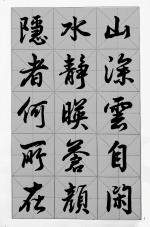 山深雲自閑
水静暎蒼顔
隱者何所在